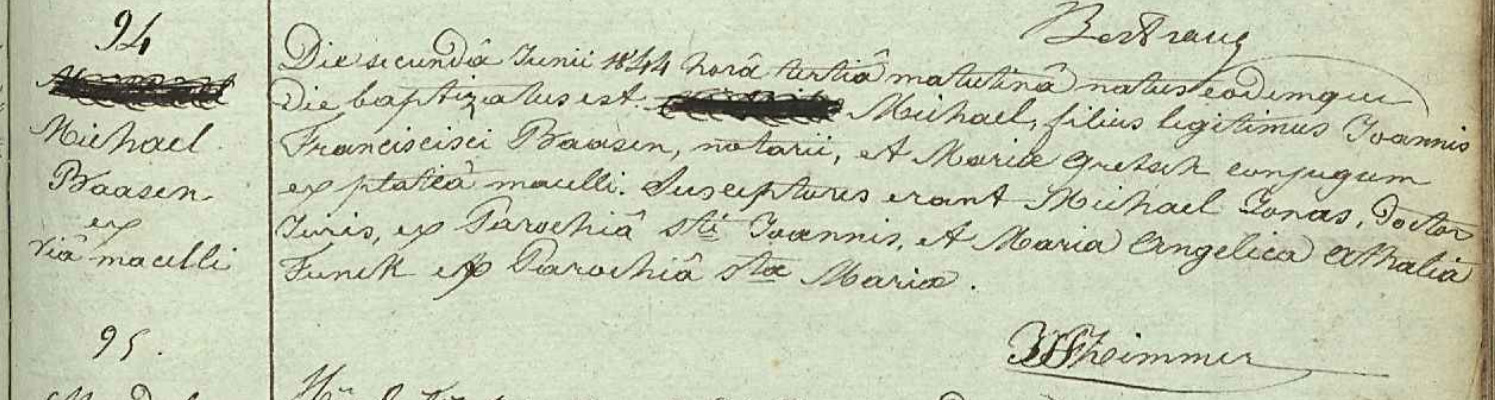 Bertrang
94
Michael
Baasen
ex
viâ macelli
Die secundâ Junii 1844 horâ tertiâ matutinâ natus eodemque
die baptizatus est Michael, filius legitimus Joannis
Franciscisci Baasen, notarii, et Mariæ Gretsch conjugum
ex plateâ macelli. Susceptores erant Michael Jonas, Doctor
Juris, ex Parochiâ sti Joannis, et Maria Angelica Athalia
Funck ex Parochiâ stæ Mariæ.
95.